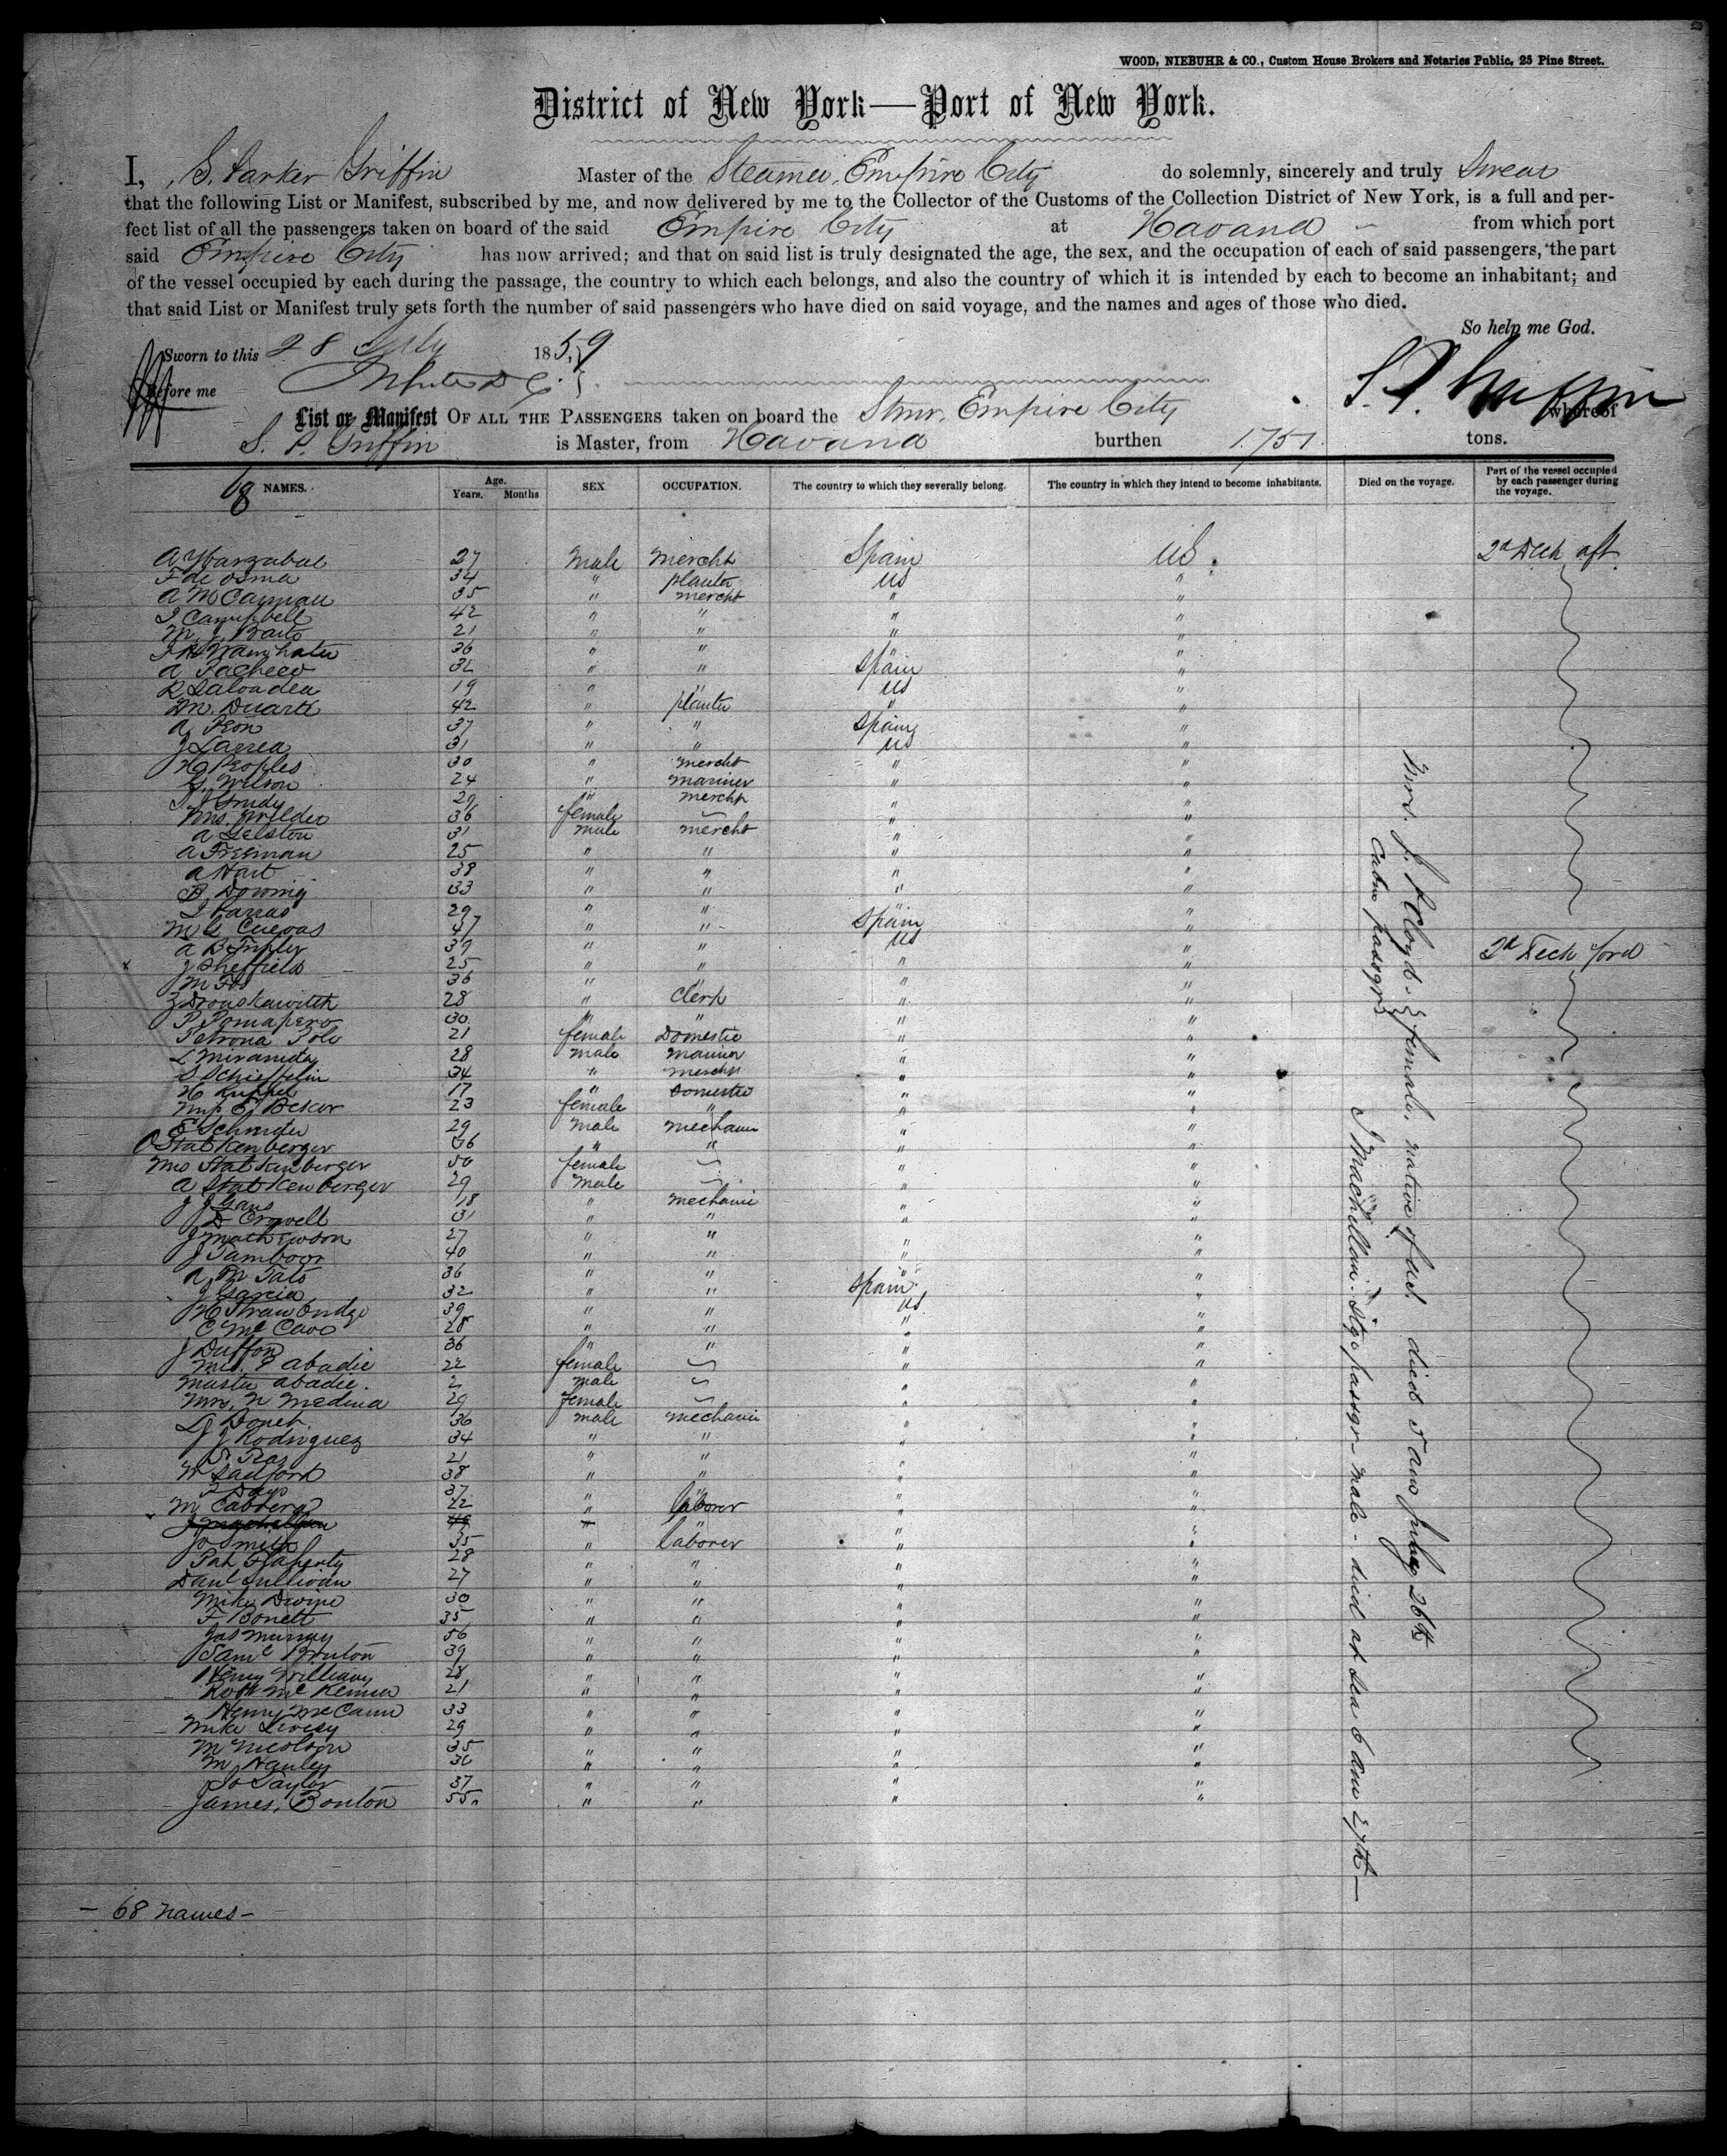 WOOD, NIEBUHR & CO., Custom House Brokers and Notaries Public, 25 Pine Street.
District of New York—Port of New York.
I, S. Parker Griffin Master of the Steamer Empire City do solemnly, sincerely and truly Swear
that the following List or Manifest, subscribed by me, and now delivered by me to the Collector of the Customs of the Collection District of New York, is a full and per-
fect list of all the passengers taken on board of the said Empire City at Havana from which port
said Empire City has now arrived; and that on said list is truly designated the age, the sex, and the occupation of each of said passengers, the part
of the vessel occupied by each during the passage, the country to which each belongs, and also the country of which it is intended by each to become an inhabitant; and
that said List or Manifest truly sets forth the number of said passengers who have died on said voyage, and the names and ages of those who died.
So help me God.
Sworn to this 28 July 1859
Before me
S. P. Griffin
List or Manifest OF ALL THE PASSENGERS taken on board the Stmr. Empire City whereof
S. P. Griffin is Master, from Havana burthen 1751 tons.
68 NAMES. Age. Years. Months SEX OCCUPATION. The country to which they severally belong. The country in which they intend to become inhabitants. Died on the voyage. Part of the vessel occupied by each passenger during the voyage.
27 Male Mercht Spain US. 2d Deck aft
F de Osma 34 " planter US "
35 " mercht " "
J Campbell 42 " " " "
21 " " " "
36 " " " "
A Pacheco " " Spain "
19 " " US "
M. Duarte 42 " planter " "
A Peon 37 " " Spain "
J Larrea 31 " " US "
H Peoples 30 " mercht " "
G. Wilson 24 " mariner " "
29 " mercht " "
Mrs. Wilder 36 female " "
A Gelston 31 male mercht " "
A Freeman 25 " " " "
A Hart 38 " " " "
B Downing 33 " " " "
29 " " " "
M G Cuevas 47 " " Spain "
39 " " US " 2d Deck ford
J Sheffield 25 " " " "
36 " " " "
28 " Clerk " "
30 " " " "
Petrona Polo 21 female Domestic " "
L Miranda 28 male mariner " "
S Schieffelin 34 " mercht " "
17 " Domestic " "
Mrs E Beker 23 female " " "
E Schmider 29 male mechanic " "
O Statkenberger 36 " " " "
Mrs Statkenberger 50 female " "
A Statkenberger 29 male " "
J J Gans 18 " mechanic " "
D Crowell 31 " " " "
J Mathewson 27 " " " "
J Tamboor 40 " " " "
36 " " " "
J Garcia 32 " " Spain "
H Strawbridge 39 " " US "
C McCave 28 " " " "
J Duffon 36 " " " "
Mrs. P Abadie 22 female " "
Master Abadie. 2 male " "
Mrs. N Medina 29 female " "
36 male mechanic " "
J J Rodriguez 34 " " " "
21 " " " "
W Sadford 38 " " " "
37 " " " "
M Cabrera 22 " laborer " "
Jo Smith 35 " laborer " "
Pat Flaherty 28 " " " "
Danl Sullivan 27 " " " "
Mike Devine 30 " " " "
F Bonett 35 " " " "
Jas Murray 56 " " " "
Saml Bruton 39 " " " "
Henry Williams 28 " " " "
Robt McKenna 21 " " " "
Henry McCann 33 " " " "
Mike Livesy 29 " " " "
M Nicolson 35 " " " "
M Hanley 36 " " " "
Jo Taylor 37 " " " "
James Bonton 55 " " " "
Mrs. J. Floyd female, native of US. died 5 am July 26th
Cabin passgr
J MacLellan. Stge passgr male - died at sea 6 am 27th —
— 68 names —